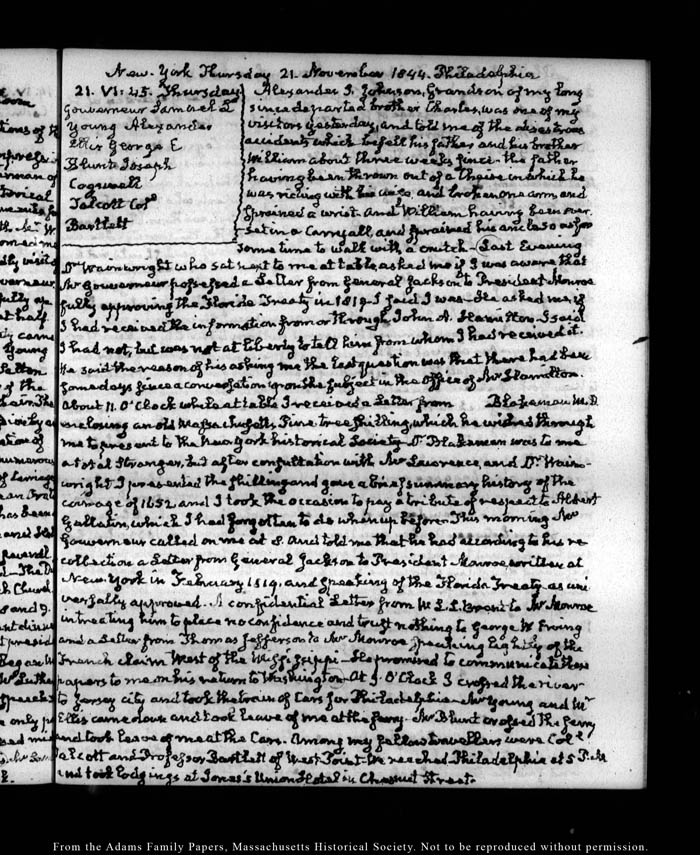 New-York Thursday 21. November 1844. Philadelphia
21. VI: 45. Thursday
Gouverneur Samuel L
Young Alexander
Ellis George E
Blunt Joseph
Cogswell
Talcott Col.
Bartlett
Alexander S. Johnson, Grandson of my long
since departed brother Charles, was one of my
visitors yesterday, and told me of the disastrous
accidents which befell his father and his brother
William about three weeks since- the father
having been thrown out of a Chaise in which he
was riding with his wife and broken one arm, and
sprained a wrist- And William having been over-
set in a Carryall, and sprained his ancle so as for
some time to walk with a crutch- Last Evening
Dr Wainwright who sat next to me at table asked me if I was aware that
Mr Gouverneur possessed a Letter from General Jackson to President Monroe
fully approving the Florida Treaty in 1819- I said I was- He asked me if
I had received the information from or through John A. Hamilton- I said
I had not, but was not at liberty to tell him from whom I had received it.
He said the reason of his asking me the last question was that there had been
some days since a conversation upon the subject in the Office of Mr Hamilton.
About 11. O'Clock while at table I received a Letter from Blakeman M.D.
enclosing an old Massachusetts Pine tree shilling, which he wished through
me to present to the New York historical Society- Dr Blakeman was to me
a total Stranger, but after consultation with Mr Lawrence, and Dr Wain-
wright I presented the shilling and gave a brief summary history of the
coinage of 1652 and I took the occasion to pay a tribute of respect to Albert
Gallatin, which I had forgotten to do when up before- This morning Mr
Gouverneur called on me at 8. And told me that he had according to his re-
collection a Letter from General Jackson to President Monroe, written at
New-York in February 1819, and speaking of the Florida Treaty as uni-
versally approved.. A confidential Letter from W. L. Brent to Mr Monroe
intreating him to place no confidence and trust nothing to George W Erving
and a Letter from Thomas Jefferson to Mr Monroe speaking lightly of the
French claim West of the Mississippi- He promised to communicate these
papers to me on his return to Washington- At 9. O'Clock I crossed the river
to Jersey city and took the train of Cars for Philadelphia- Mr Young and Mr
Ellis came down and took leave of me at the ferry- Mr Blunt crossed the ferry
and took leave of me at the Cars. Among my fellow travellers were Col.
Talcott and Professor Bartlett of West Point- We reached Philadelphia at 5 P.M
and took lodgings at Jones's Union Hotel in Chesnut Street.
From the Adams Family Papers, Massachusetts Historical Society. Not to be reproduced without permission.